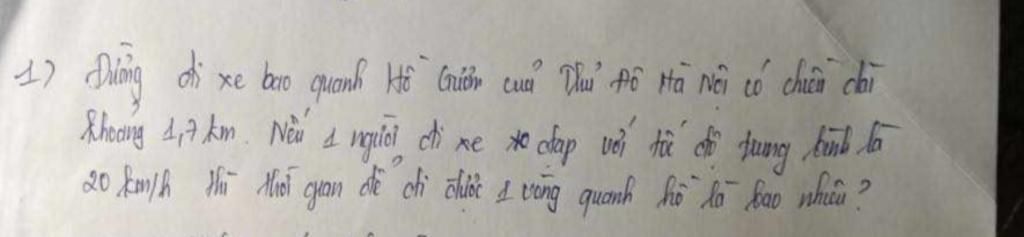 1) Đường đi xe bao quanh Hồ Gươm của Thủ Đô Hà Nội có chiều dài
khoảng 1,7 km. Nếu 1 người đi xe đạp với tốc độ trung bình là
20 km/h thì thời gian để đi được 1 vòng quanh hồ là bao nhiêu?